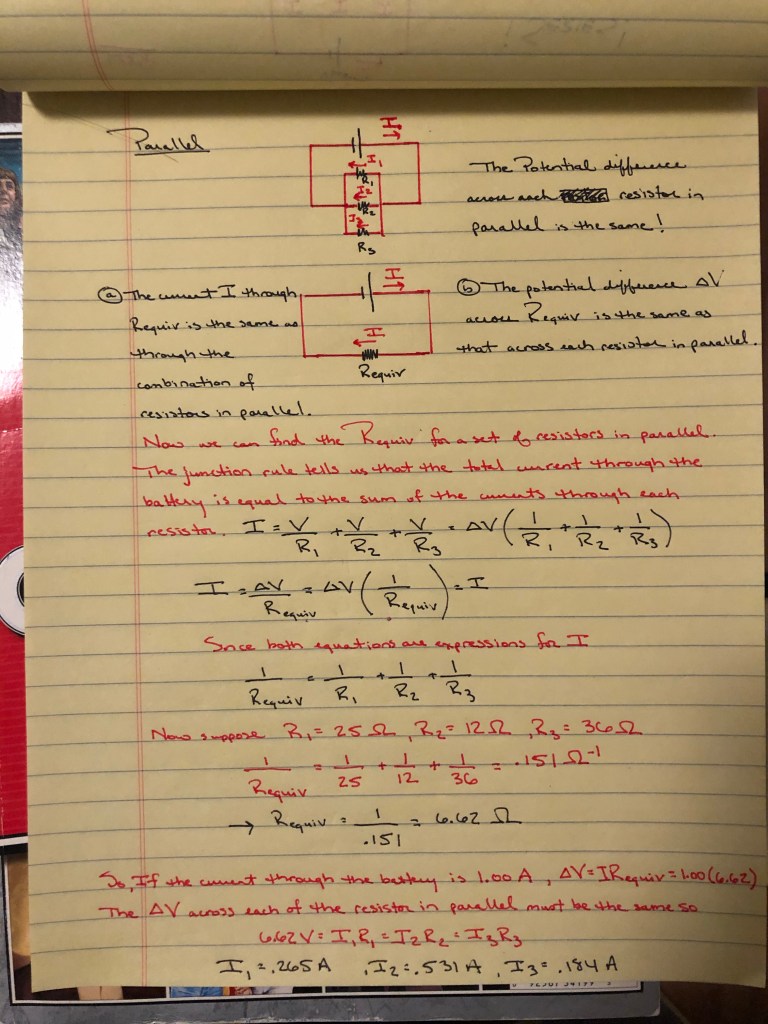 Parallel
I
I1
R1
I2
R2
I3
R3
The Potential difference
across each resistor in
parallel is the same!
I
I
Requiv
ⓐ The current I through
Requiv is the same as
through the
combination of
resistors in parallel.
ⓑ The potential difference ΔV
across Requiv is the same as
that across each resistor in parallel.
Now we can find the Requiv for a set of resistors in parallel.
The junction rule tells us that the total current through the
battery is equal to the sum of the currents through each
resistor. I = V/R1 + V/R2 + V/R3 = ΔV(1/R1 + 1/R2 + 1/R3)
I = ΔV/Requiv = ΔV(1/Requiv) = I
Since both equations are expressions for I
1/Requiv = 1/R1 + 1/R2 + 1/R3
Now suppose R1 = 25 Ω, R2 = 12 Ω, R3 = 36 Ω
1/Requiv = 1/25 + 1/12 + 1/36 = .151 Ω⁻¹
→ Requiv = 1/.151 = 6.62 Ω
So, If the current through the battery is 1.00 A, ΔV = IRequiv = 1.00(6.62)
The ΔV across each of the resistor in parallel must be the same so
6.62 V = I1R1 = I2R2 = I3R3
I1 = .265 A, I2 = .531 A, I3 = .184 A